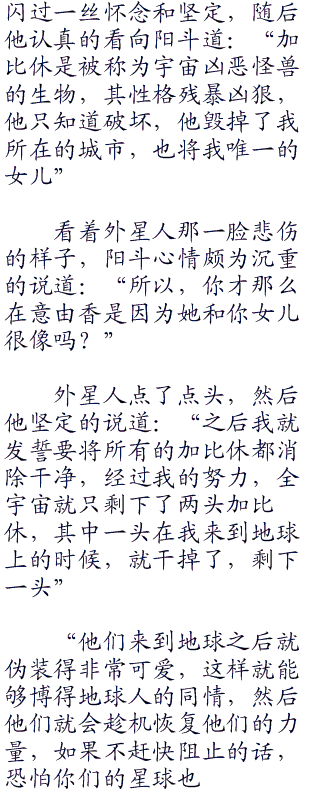 闪过一丝怀念和坚定，随后
他认真的看向阳斗道：“加
比休是被称为宇宙凶恶怪兽
的生物，其性格残暴凶狠，
他只知道破坏，他毁掉了我
所在的城市，也将我唯一的
女儿”
看着外星人那一脸悲伤
的样子，阳斗心情颇为沉重
的说道：“所以，你才那么
在意由香是因为她和你女儿
很像吗？”
外星人点了点头，然后
他坚定的说道：“之后我就
发誓要将所有的加比休都消
除干净，经过我的努力，全
宇宙就只剩下了两头加比
休，其中一头在我来到地球
上的时候，就干掉了，剩下
一头”
“他们来到地球之后就
伪装得非常可爱，这样就能
够博得地球人的同情，然后
他们就会趁机恢复他们的力
量，如果不赶快阻止的话，
恐怕你们的星球也